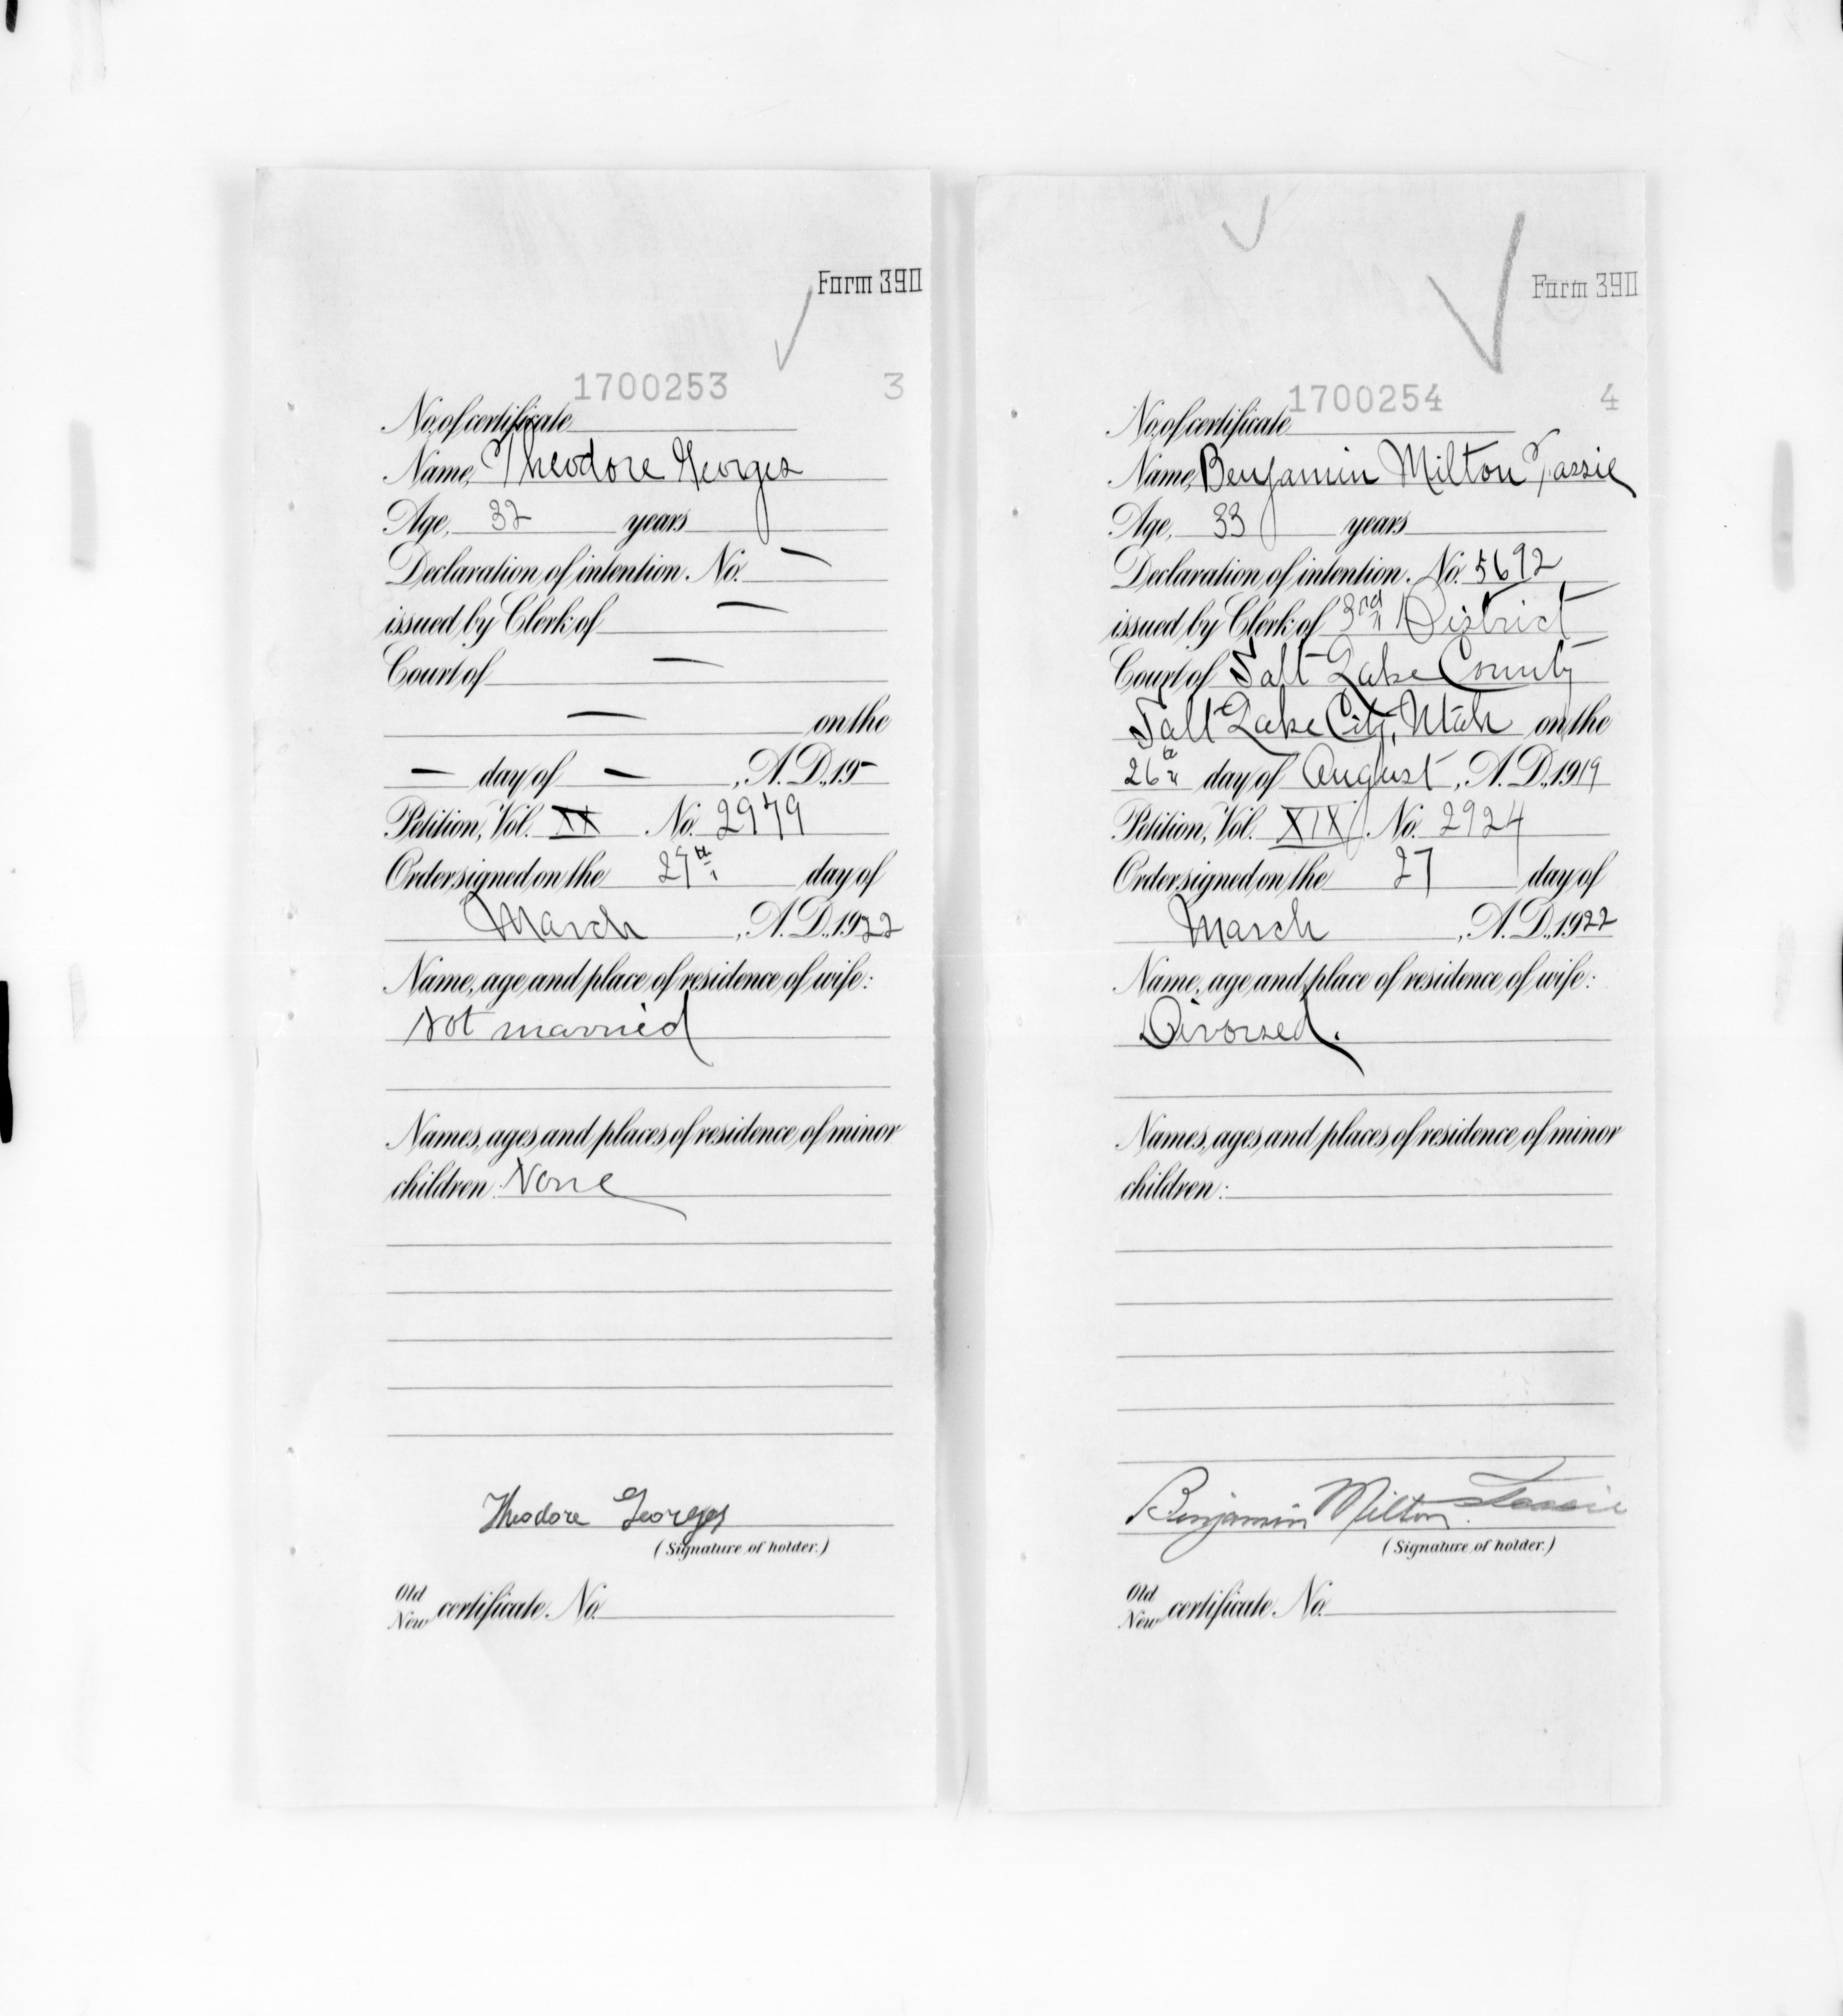 Form 390
1700253 3
No. of certificate
Name, Theodore Georges
Age, 32 years
Declaration of intention. No. —
issued by Clerk of —
Court of —
— on the
— day of —, A.D., 19-
Petition, Vol. XX No. 2979
Order signed on the 27th day of
March, A.D., 1922
Name, age and place of residence of wife:
Not married
Names, ages and places of residence of minor
children: None
Theodore Georges
(Signature of holder.)
Old
New certificate. No.
Form 390
1700254 4
No. of certificate
Name, Benjamin Milton Tassie
Age, 33 years
Declaration of intention. No. 5692
issued by Clerk of 3rd District
Court of Salt Lake County
Salt Lake City, Utah on the
26th day of August, A.D., 1919
Petition, Vol. XIX No. 2924
Order signed on the 27 day of
March, A.D., 1922
Name, age and place of residence of wife:
Divorsed.
Names, ages and places of residence of minor
children:
Benjamin Milton Tassie
(Signature of holder.)
Old
New certificate. No.